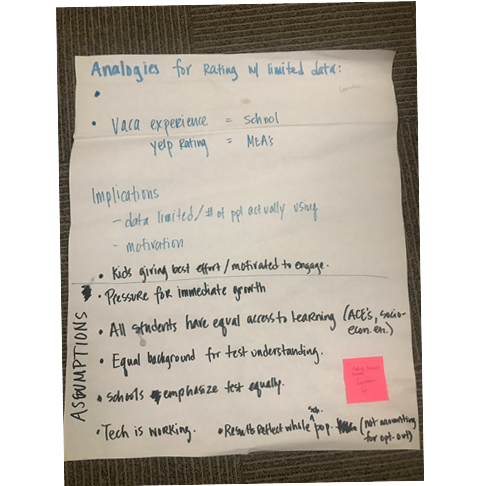 Analogies for Rating w/ limited data:
•
• Vaca experience = School
Yelp Rating = MEA's
Implications
- data limited/# of ppl actually using
- motivation
• Kids giving best effort/motivated to engage.
ASSUMPTIONS
• Pressure for immediate growth
• All students have equal access to learning (ACE's, socio-
econ. etc.)
• Equal background for test understanding.
• Schools emphasize test equally.
• Tech is working. • Results reflect while sch. pop. (not amounting
for opt-out)